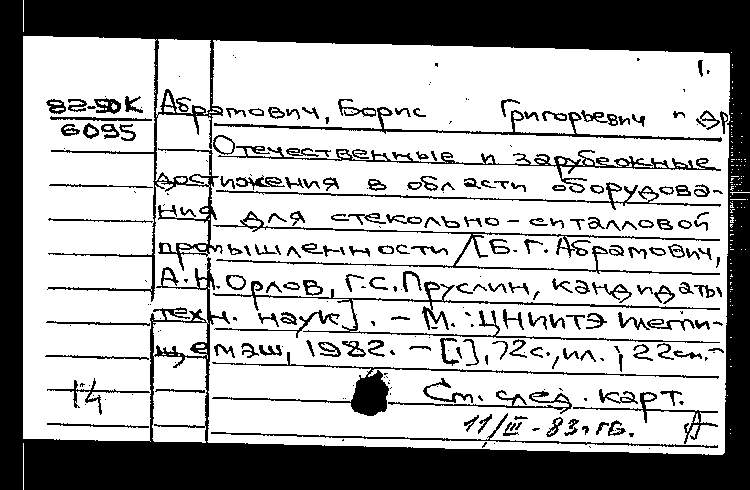 1.
82-50К Абрамович, Борис Григорьевич и др
6095
Отечественные и зарубежные
достижения в области оборудова-
ния для стекольно-ситалловой
промышленности /[Б.Г. Абрамович,
А.Н. Орлов, Г.С. Пруслин, кандидаты
техн. наук]. – М. : ЦНИИТЭ
щемаш, 1982. – [1], 72с., ил. ; 22см.-
14 См. след. карт.
11/III - 83г.